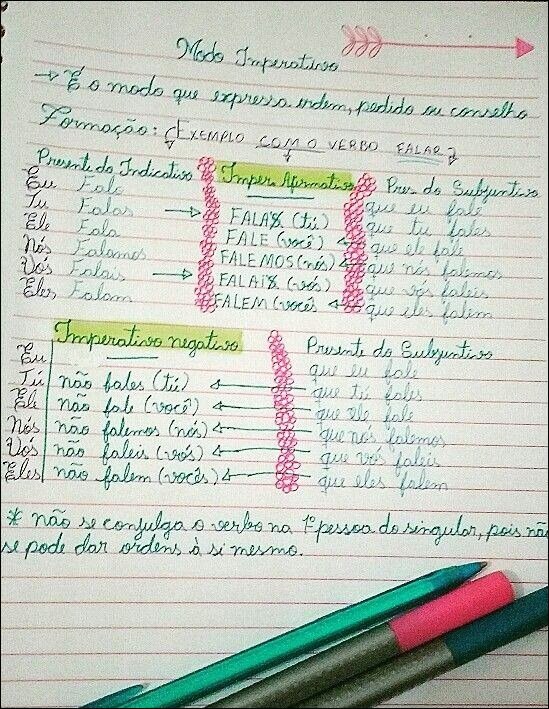 Modo Imperativo
→ É o modo que expressa ordem, pedido ou conselho
Formação: (EXEMPLO COM O VERBO FALAR)
Presente do Indicativo Imper. Afirmativo Pres. do Subjuntivo
Eu Falo que eu fale
Tu Falas → FALAS (tú) que tu fales
Ele Fala FALE (você) ← que ele fale
Nós Falamos FALEMOS (nós) ← que nós falemos
Vós Falais → FALAIS (vós) que vós faleis
Eles Falam FALEM (vocês ← que eles falem
Imperativo negativo Presente do Subjuntivo
Eu que eu fale
Tú não fales (tú) ← que tú fales
Ele não fale (você) ← que ele fale
Nós não falemos (nós) ← que nós falemos
Vós não faleis (vós) ← que vós faleis
Eles não falem (vocês) ← que eles falem
* não se conjulga o verbo na 1ª pessoa do singular, pois não
se pode dar ordens à si mesmo.